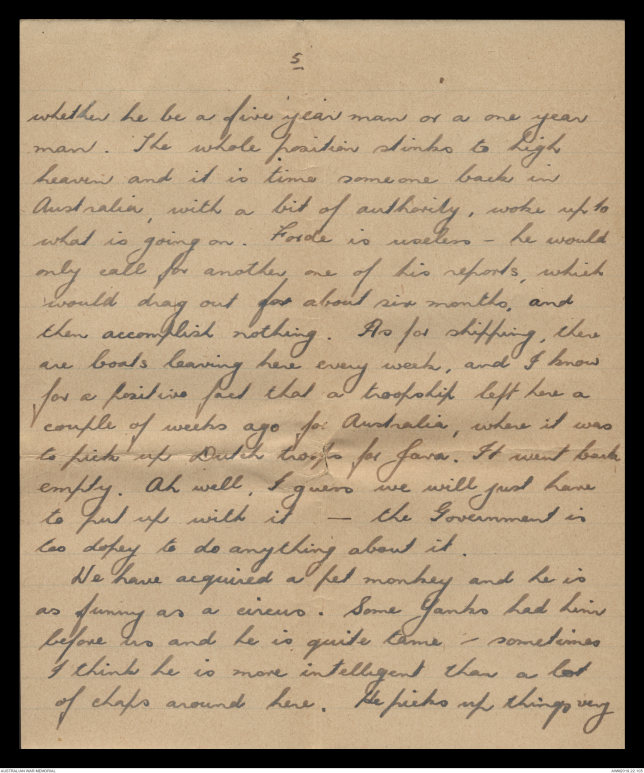 5
whether he be a five year man or a one year
man. The whole position stinks to high
heaven and it is time someone back in
Australia, with a bit of authority, woke up to
what is going on. Forde is useless - he would
only call for another one of his reports, which
would drag out for about six months, and
then accomplish nothing. As for shipping, there
are boats leaving here every week, and I know
for a positive fact that a troopship left here a
couple of weeks ago for Australia, where it was
to pick up Dutch troops for Java. It went back
empty. Ah well, I guess we will just have
to put up with it — the Government is
too dopey to do anything about it.
We have acquired a pet monkey and he is
as funny as a circus. Some Yanks had him
before us and he is quite tame - sometimes
I think he is more intelligent than a lot
of chaps around here. He picks up things very
AUSTRALIAN WAR MEMORIAL